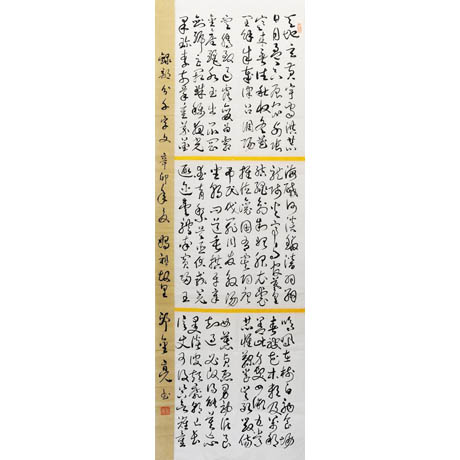 天地玄黃宇宙洪荒
日月盈昃辰宿列張
寒來暑往秋收冬藏
閏餘成歲律呂調陽
雲騰致雨露結為霜
金生麗水玉出崑岡
劍號巨闕珠稱夜光
果珍李柰菜重芥薑
海鹹河淡鱗潛羽翔
龍師火帝鳥官人皇
始制文字乃服衣裳
推位讓國有虞陶唐
弔民伐罪周發殷湯
坐朝問道垂拱平章
愛育黎首臣伏戎羌
遐邇壹體率賓歸王
鳴鳳在樹白駒食場
化被草木賴及萬方
蓋此身髮四大五常
恭惟鞠養豈敢毀傷
女慕貞潔男效才良
知過必改得能莫忘
罔談彼短靡恃己長
信使可復器欲難量
錄部分千字文 辛卯年夏 故里 鄧金亮書